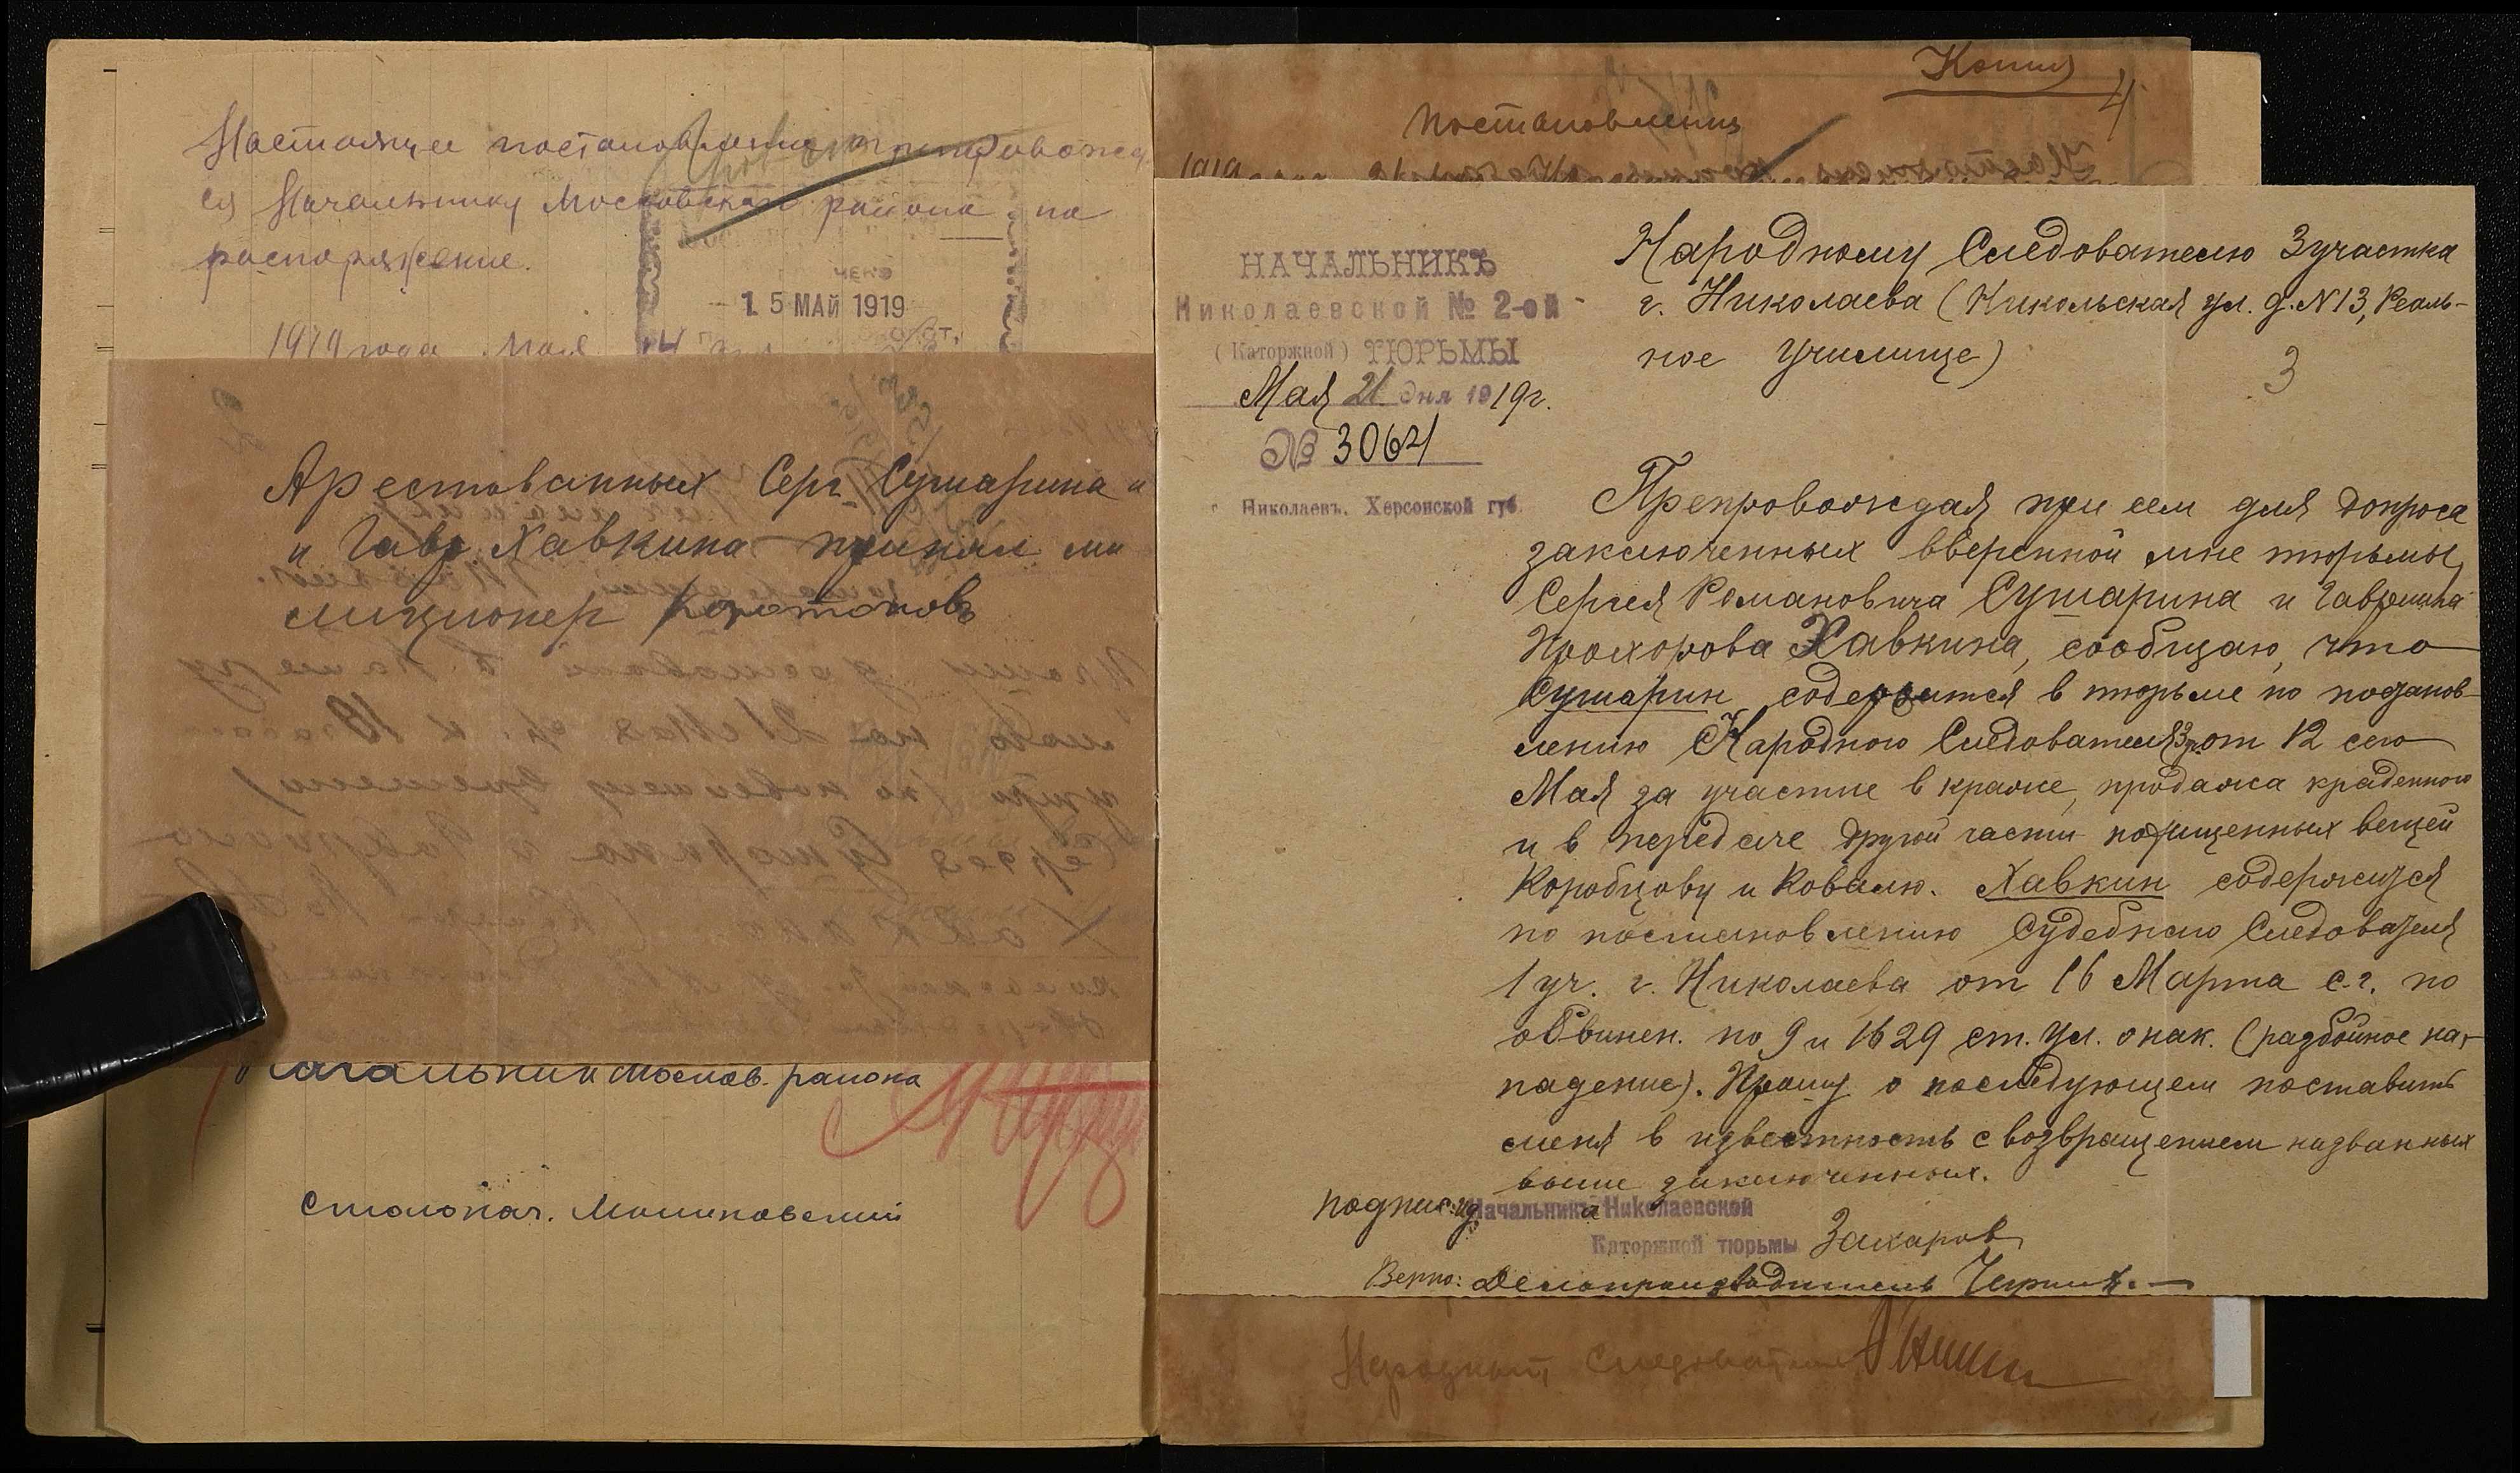 Настоящее постановление препровождает
ся Начальнику Московскаго района на
распоряжение.
15 МАЙ 1919
1919 года Мая 14 дня
Арестованных Серг. Сушарина и
и Гавр. Хавкина принял ми
лиционер
Начальник Москов. района
Столонач.
Копия
4
Постановления
НАЧАЛЬНИКЪ
Николаевской № 2-ой
(Каторжной) ТЮРЬМЫ
Мая 21 дня 1919г.
№ 3064
г. Николаевъ, Херсонской губ.
Народному Следователю 3 участка
г. Николаева (Никольская ул. д. N 13, Реаль-
ное Училище)
3
Препровождая при сем для допроса
заключенных вверенной мне тюрьмы,
Сергея Романовича Сушарина и Гавриила
Прохорова Хавкина, сообщаю, что
Сушарин содержится в тюрьме по постанов-
лению Народного Следователя 3 р. от 12 сего
Мая за участие в краже, продажа краденного
и в передаче другой части похищенных вещей
Коробцову и Ковалю. Хавкин содержится
по постановлению Судебного Следователя
1 уч. г. Николаева от 16 Марта с.г. по
обвинен. по 9 и 1629 ст. Ул. о нак. (разбойное на-
падение). Прошу о последующем поставить
меня в известность с возвращением названных
выше заключенных.
Подпис: Начальника Николаевской
Каторжной тюрьмы Захаров
Верно: Делопроизводитель
Народный Следователь